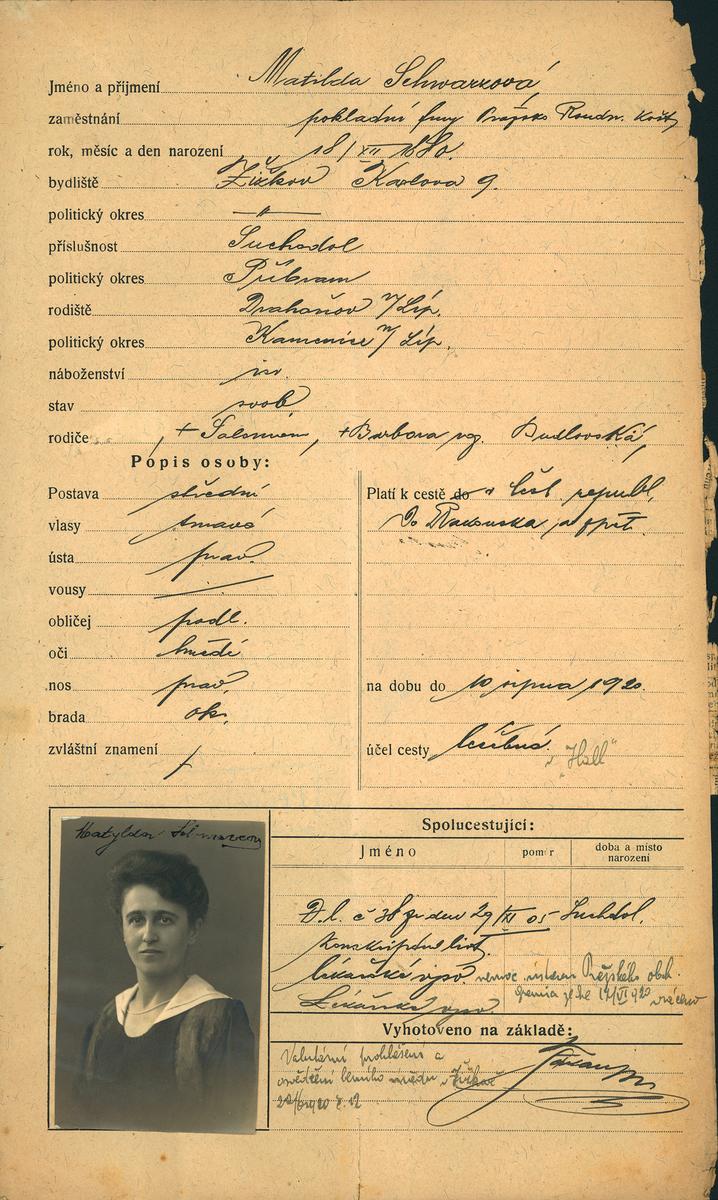 Jméno a příjmení Matilda Schwarzová
zaměstnání pokladní fmy Pražsko Roudn.
rok, měsíc a den narození 18/XII 1880.
bydliště Žižkov Karlova 9.
politický okres —"—
příslušnost Suchdol
politický okres Příbram
rodiště Drahoňov n/Lip.
politický okres Kamenice n/Lip.
náboženství isr.
stav svob
rodiče + Salomon, + Barbora roz. Budlovská,
Popis osoby:
Postava střední
vlasy tmavé
ústa prav.
vousy
obličej podl.
oči hnědé
nos prav.
brada ok.
zvláštní znamení
Platí k cestě do v čsl. republ.
do Rakouska a zpět.
na dobu do 10 srpna 1920.
účel cesty léčebná
v "Hall"
Matylda Schwarzová
Spolucestující:
Jméno poměr doba a místo narození
D. l. č 38 ze dne 29/XI 05 Suchdol.
Konskripční list.
lékařské vysv. nemoc. ústavu Pražského obch.
Lékařské vysv. gremia ze dne 17/VI 1920 vráceno
Vyhotoveno na základě:
Valutární prohlášení a
osvědčení berního úřadu v Žižkově